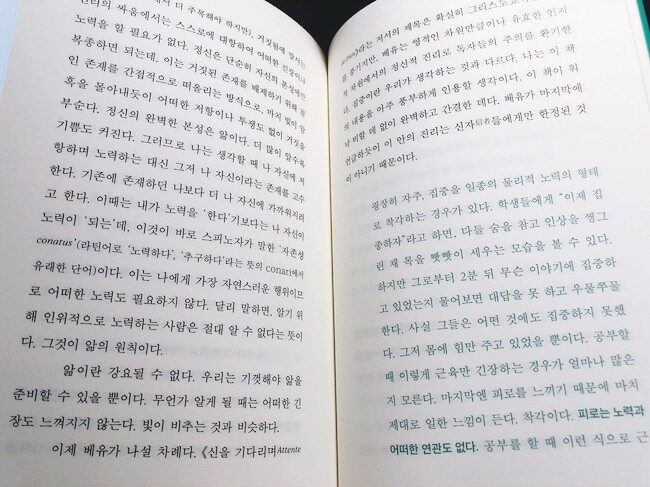 에서 더 주목해야 하지만). 거짓됨에 맞서는
진리의 싸움에서는 스스로에 대항하여 어떠한 긴장이나
노력을 할 필요가 없다. 정신은 단순히 자신의 본성에만
복종하면 되는데, 이는 거짓된 존재를 배제하기 위해 옳
은 존재를 간접적으로 떠올리는 방식으로, 마치 빛이 암
흑을 몰아내듯이 어떠한 저항이나 투쟁도 없이 거짓을
부순다. 정신의 완벽한 본성은 앎이다. 더 많이 알수록
기쁨도 커진다. 그러므로 나는 생각할 때 나 자신에 저
항하며 노력하는 대신 그저 나 자신이라는 존재를 고수
한다. 기존에 존재하던 나보다 더 나 자신에 가까워지려
고 한다. 이때는 내가 노력을 '한다'기보다는 나 자신이
노력이 '되는'데, 이것이 바로 스피노자가 말한 '자존성
conatus'(라틴어로 '노력하다', '추구하다'라는 뜻의 conari에서
유래한 단어)이다. 이는 나에게 가장 자연스러운 행위이므
로 어떠한 노력도 필요하지 않다. 달리 말하면, 알기 위
해 인위적으로 노력하는 사람은 절대 알 수 없다는 뜻이
다. 그것이 앎의 원칙이다.
앎이란 강요될 수 없다. 우리는 기껏해야 앎을
준비할 수 있을 뿐이다. 무언가 알게 될 때는 어떠한 긴
장도 느껴지지 않는다. 빛이 비추는 것과 비슷하다.
이제 베유가 나설 차례다. 《신을 기다리며Attente
라는 저서의 제목은 확실히 그리스도교
를 풍기지만, 베유는 영적인 차원만큼이나 유효한 인지
적 차원에서의 정신적 진리로 독자들의 주의를 환기한
다. 집중이란 우리가 생각하는 것과 다르다. 나는 이 책
의 내용을 아주 풍부하게 인용할 생각이다. 이 책이 워
낙 비할 데 없이 완벽하고 간결한 데다, 베유가 마지막에
언급하듯이 이 안의 진리는 신자信者들에게만 한정된 것
이 아니기 때문이다.
굉장히 자주, 집중을 일종의 물리적 노력의 형태
로 착각하는 경우가 있다. 학생들에게 "이제 집
중하자"라고 하면, 다들 숨을 참고 인상을 찡그
린 채 목을 빳빳이 세우는 모습을 볼 수 있다.
하지만 그로부터 2분 뒤 무슨 이야기에 집중하
고 있었는지 물어보면 대답을 못 하고 우물쭈물
한다. 사실 그들은 어떤 것에도 집중하지 못했
다. 그저 몸에 힘만 주고 있었을 뿐이다. 공부할
때 이렇게 근육만 긴장하는 경우가 얼마나 많은
지 모른다. 마지막엔 피로를 느끼기 때문에 마치
제대로 일한 느낌이 든다. 착각이다. 피로는 노력과
어떠한 연관도 없다. 공부를 할 때 이런 식으로 근